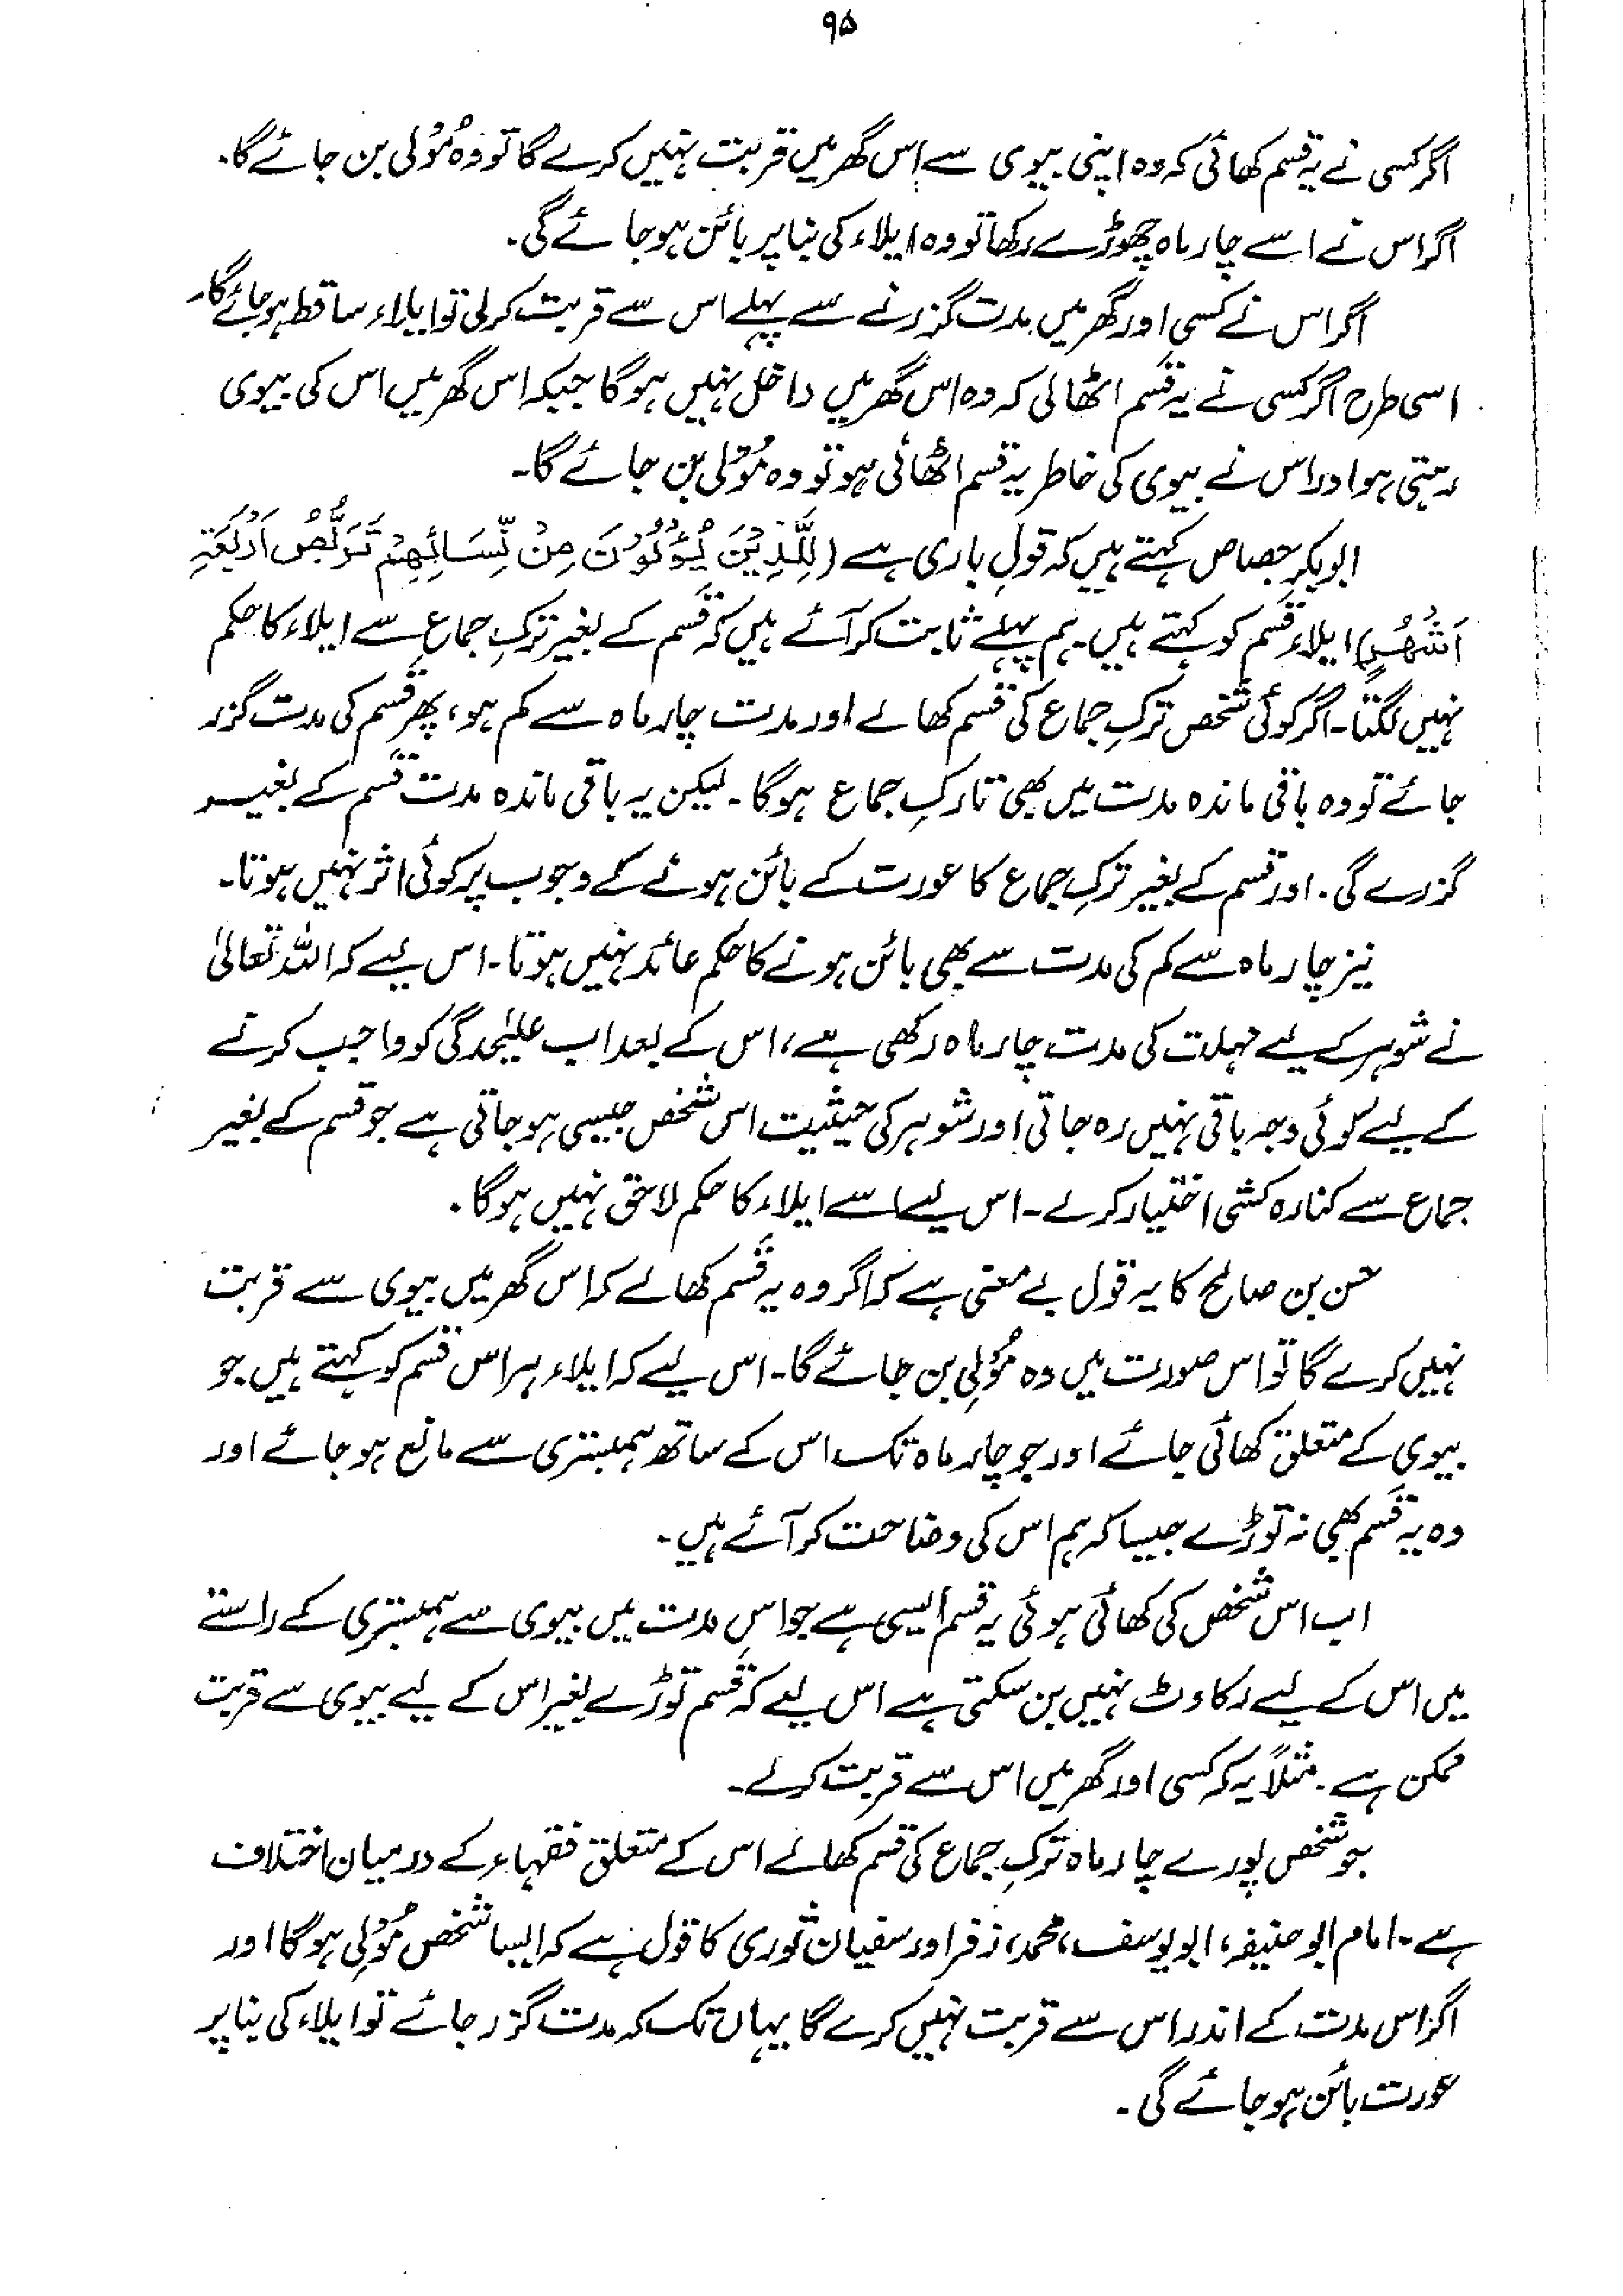 ۹۵
اگر کسی نے یہ قسم کھائی کہ وہ اپنی بیوی سے اس گھر میں قربت نہیں کرے گا تو وہ مُوْلی بن جائے گا۔
اگر اس نے اسے چار ماہ چھوڑے رکھا تو وہ ایلاء کی بنا پر بائن ہو جائے گی۔
اگر اس نے کسی اور گھر میں مدت گزرنے سے پہلے اس سے قربت کر لی تو ایلاء ساقط ہو جائے گا۔
اسی طرح اگر کسی نے یہ قسم اٹھالی کہ وہ اس گھر میں داخل نہیں ہوگا جبکہ اس گھر میں اس کی بیوی
رہتی ہو اور اس نے بیوی کی خاطر یہ قسم اٹھائی ہو تو وہ مُوْلی بن جائے گا۔
ابوبکر جصاص کہتے ہیں کہ قولِ باری ہے (لِلَّذِیْنَ یُؤْلُوْنَ مِنْ نِّسَائِهِمْ تَرَبُّصُ اَرْبَعَةِ
اَشْهُرٍ) ایلاء قسم کو کہتے ہیں۔ ہم پہلے ثابت کر آئے ہیں کہ قسم کے بغیر ترکِ جماع سے ایلاء کا حکم
نہیں لگتا۔ اگر کوئی شخص ترکِ جماع کی قسم کھالے اور مدت چار ماہ سے کم ہو، پھر قسم کی مدت گزر
جائے تو وہ باقی ماندہ مدت میں بھی تارکِ جماع ہوگا۔ لیکن یہ باقی ماندہ مدت قسم کے بغیر
گزرے گی۔ اور قسم کے بغیر ترکِ جماع کا عورت کے بائن ہونے کے وجوب پر کوئی اثر نہیں ہوتا۔
نیز چار ماہ سے کم کی مدت سے بھی بائن ہونے کا حکم عائد نہیں ہوتا۔ اس لیے کہ اللہ تعالیٰ
نے شوہر کے لیے مہلت کی مدت چار ماہ رکھی ہے، اس کے بعد اب علیٰحدگی کو واجب کرنے
کے لیے کوئی وجہ باقی نہیں رہ جاتی اور شوہر کی حیثیت اس شخص جیسی ہو جاتی ہے جو قسم کے بغیر
جماع سے کنارہ کشی اختیار کر لے۔ اس لیے اسے ایلاء کا حکم لاحق نہیں ہوگا۔
حسن بن صالح کا یہ قول بے معنی ہے کہ اگر وہ یہ قسم کھالے کہ اس گھر میں بیوی سے قربت
نہیں کرے گا تو اس صورت میں وہ مُوْلِی بن جائے گا۔ اس لیے کہ ایلاء ہر اس قسم کو کہتے ہیں جو
بیوی کے متعلق کھائی جائے اور جو چار ماہ تک اس کے ساتھ ہمبستری سے مانع ہو جائے اور
وہ یہ قسم بھی نہ توڑے جیسا کہ ہم اس کی وضاحت کر آئے ہیں۔
اب اس شخص کی کھائی ہوئی یہ قسم ایسی ہے جو اس مدت میں بیوی سے ہمبستری کے راستے
میں اس کے لیے رکاوٹ نہیں بن سکتی ہے اس لیے کہ قسم توڑے بغیر اس کے لیے بیوی سے قربت
ممکن ہے۔ مثلاً یہ کہ کسی اور گھر میں اس سے قربت کر لے۔
جو شخص پورے چار ماہ ترکِ جماع کی قسم کھالے اس کے متعلق فقہاء کے درمیان اختلاف
ہے۔ امام ابو حنیفہ، ابو یوسف، محمد، زفر اور سفیان ثوری کا قول ہے کہ ایسا شخص مُوْلِی ہوگا اور
اگر اس مدت کے اندر اس سے قربت نہیں کرے گا یہاں تک کہ مدت گزر جائے تو ایلاء کی بنا پر
عورت بائن ہو جائے گی۔